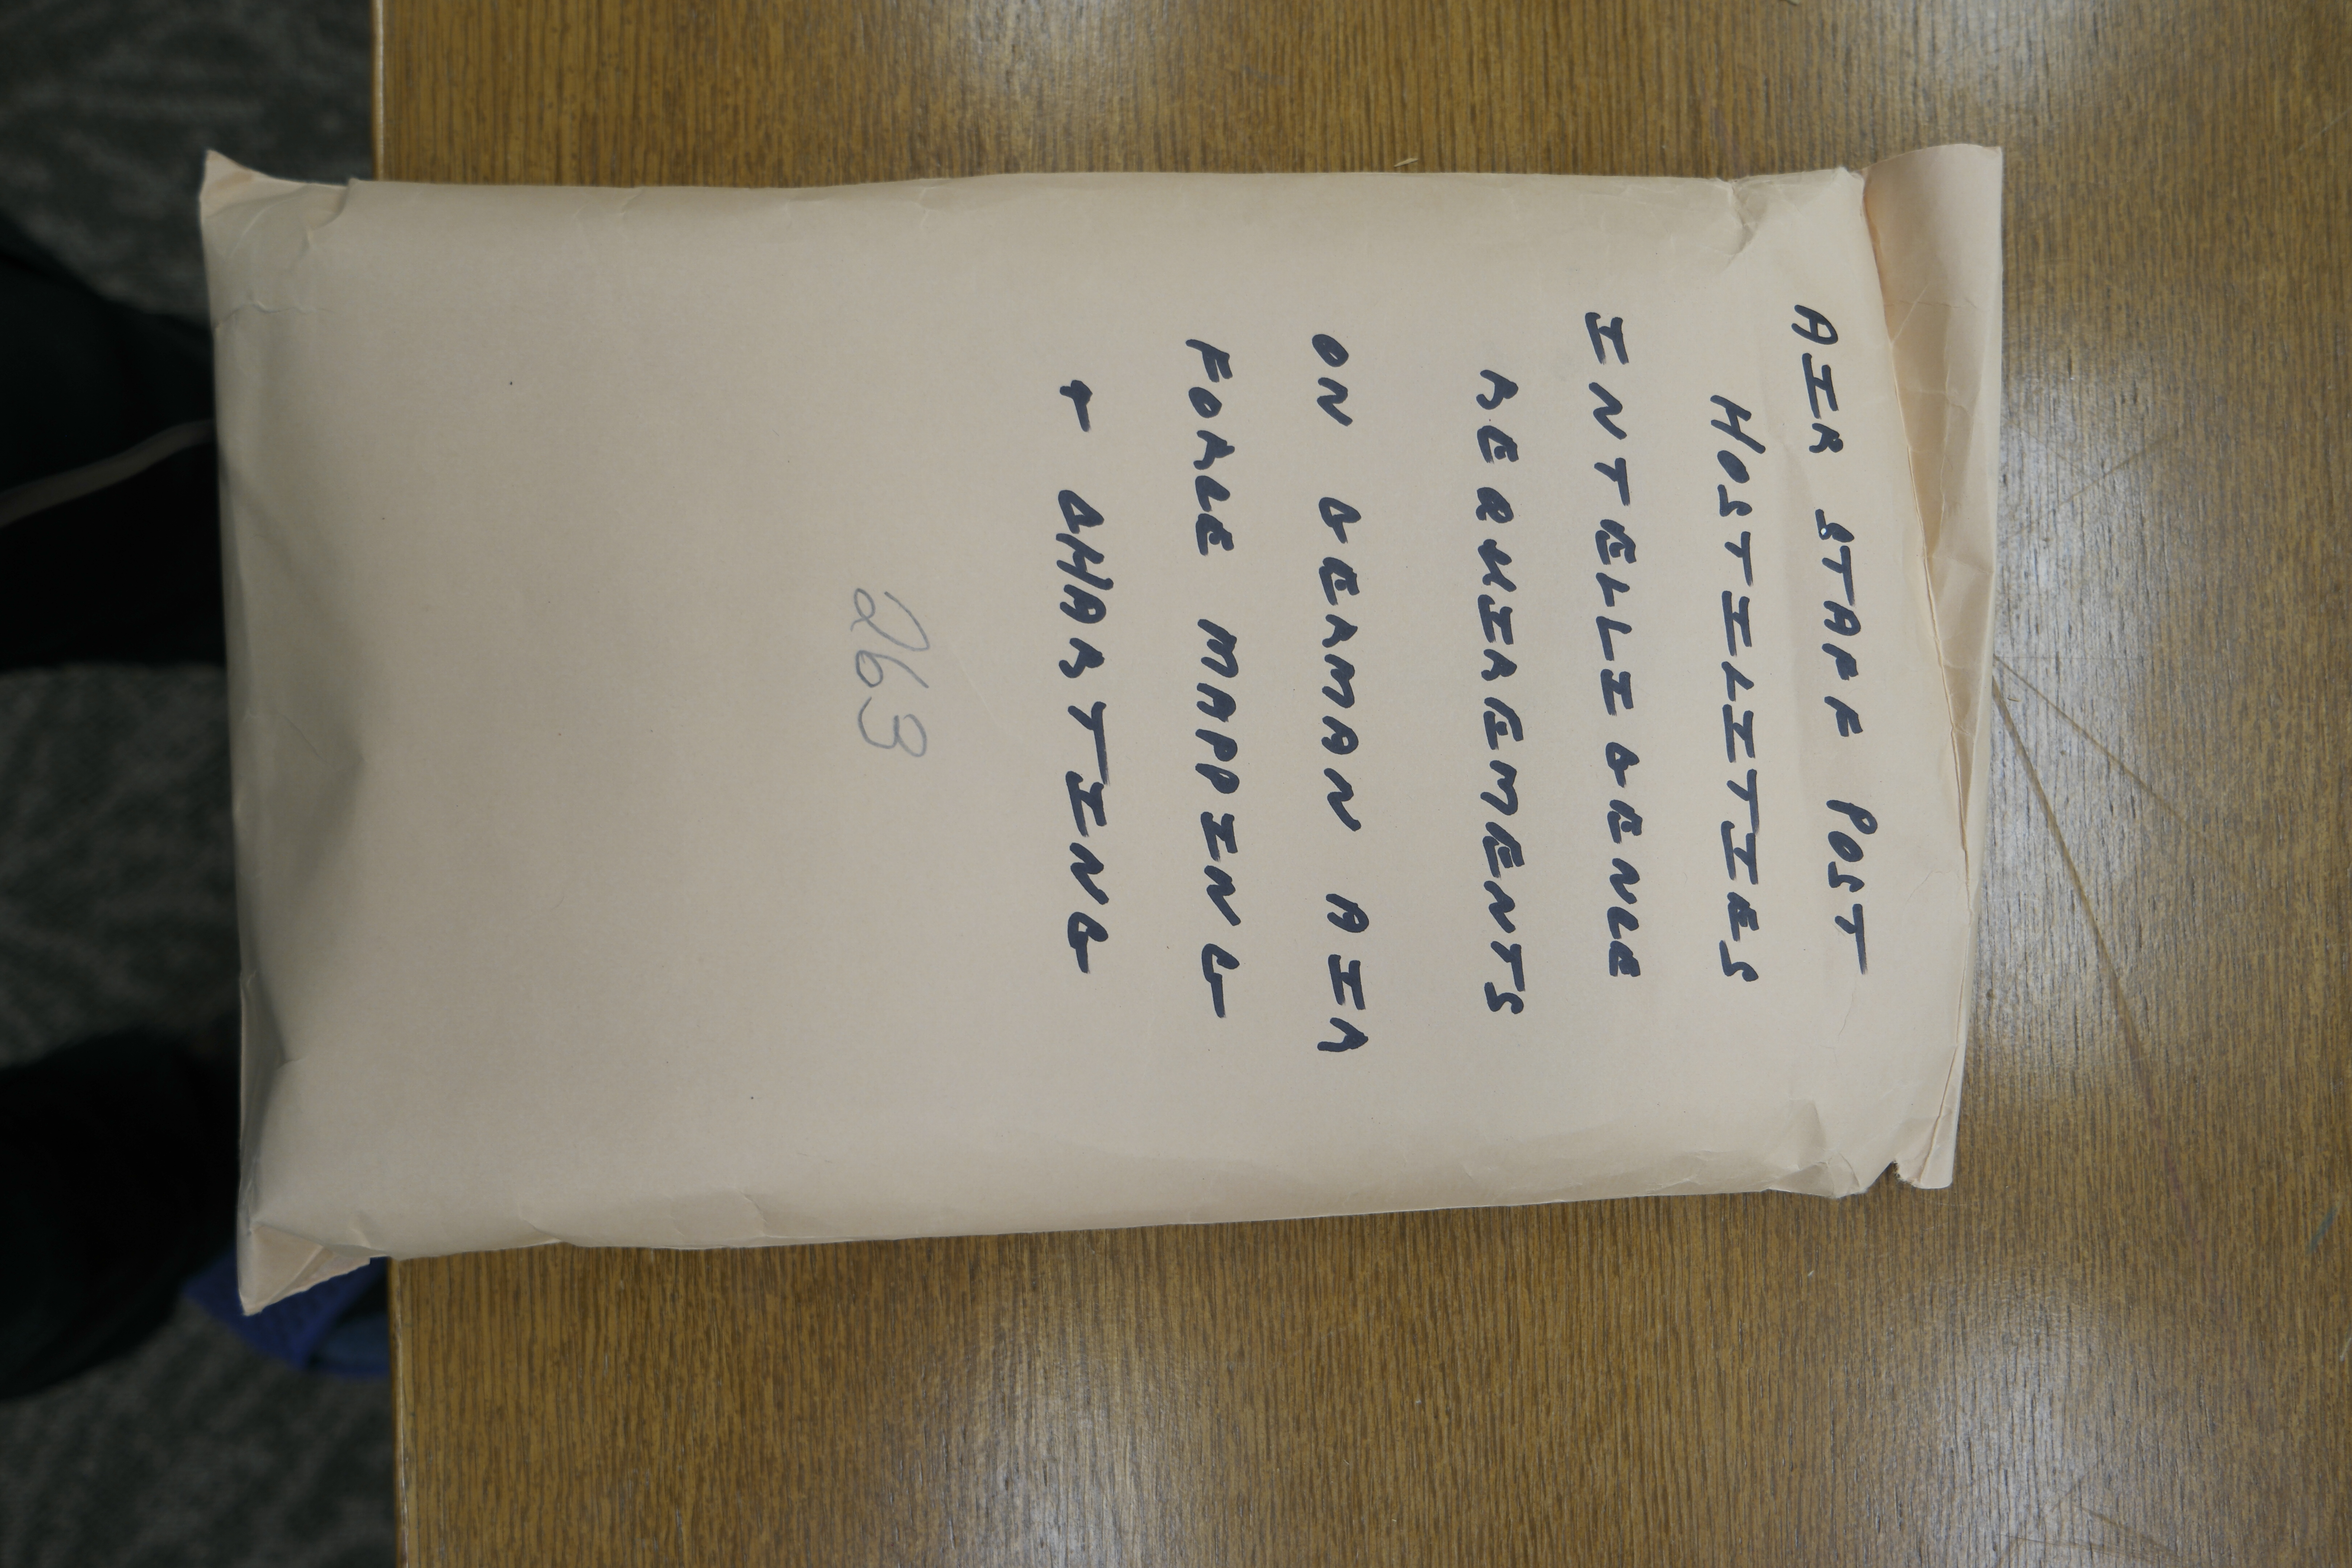 AIR STAFF POST
HOSTILITIES
INTELLIGENCE
REQUIREMENTS
ON GERMAN AIR
FORCE MAPPING
+ CHARTING
263